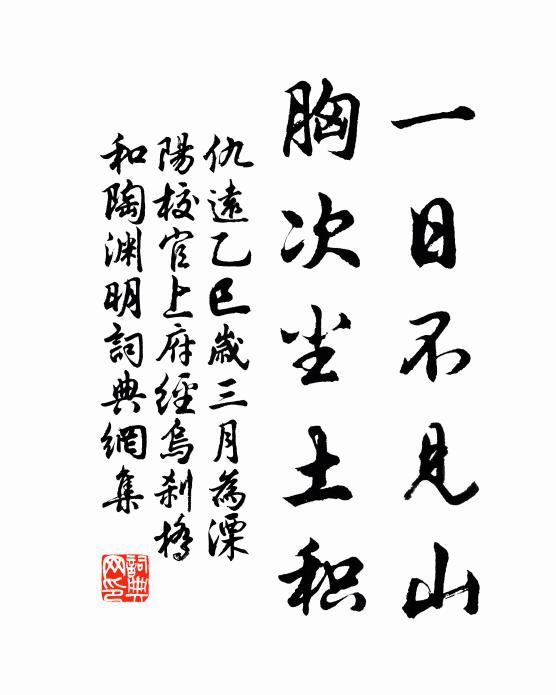 一日不見山
胸次尘土积
仇遠乙巳歲三月為溧
陽校官上府經烏刹橋
和陶渊明詞典網集
詞典
网印